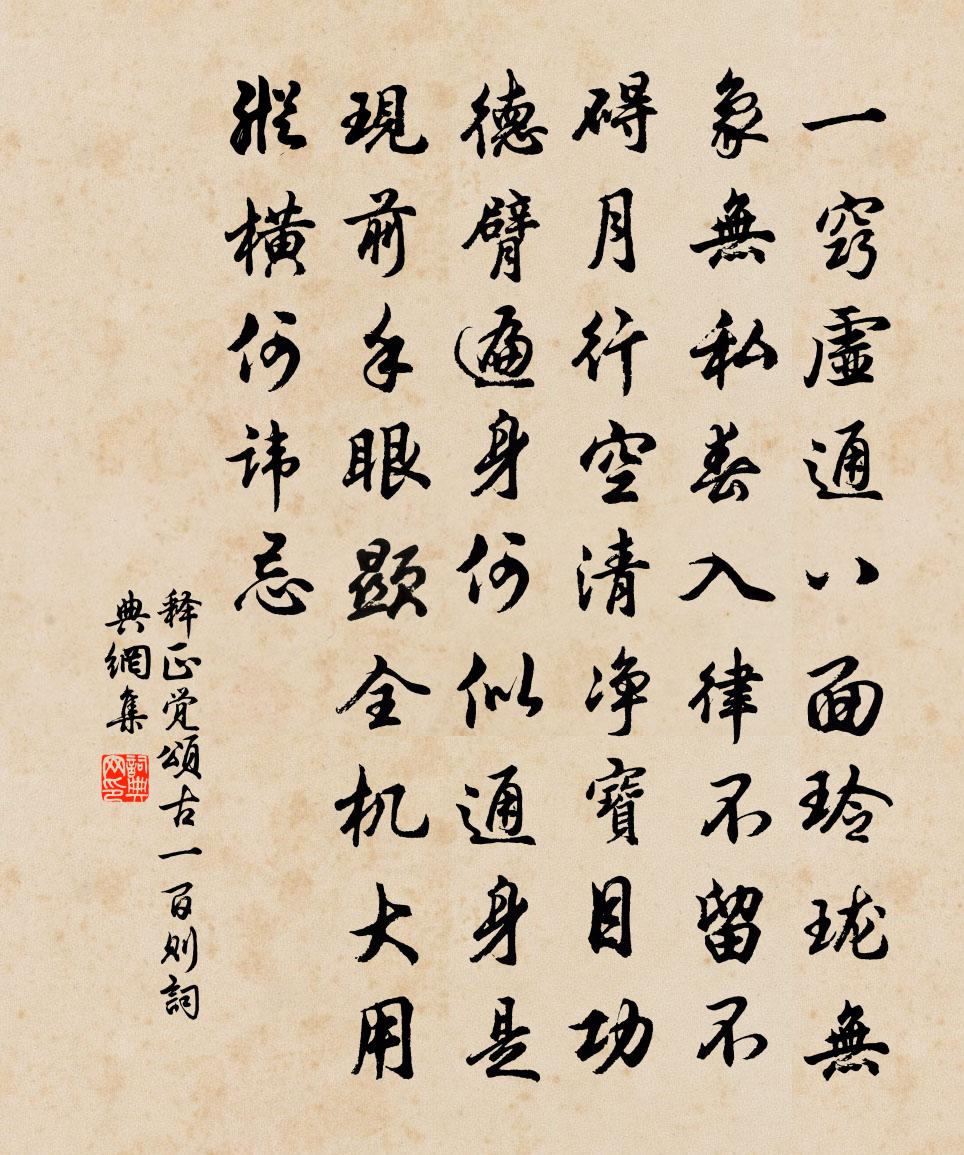 一窍虚通八面玲珑無
象無私春入律不留不
碍月行空清净寶目功
德臂遍身何似通身是
現前手眼顯全机大用
縱横何讳忌
释正觉頌古一百则詞
典網集
詞典网印